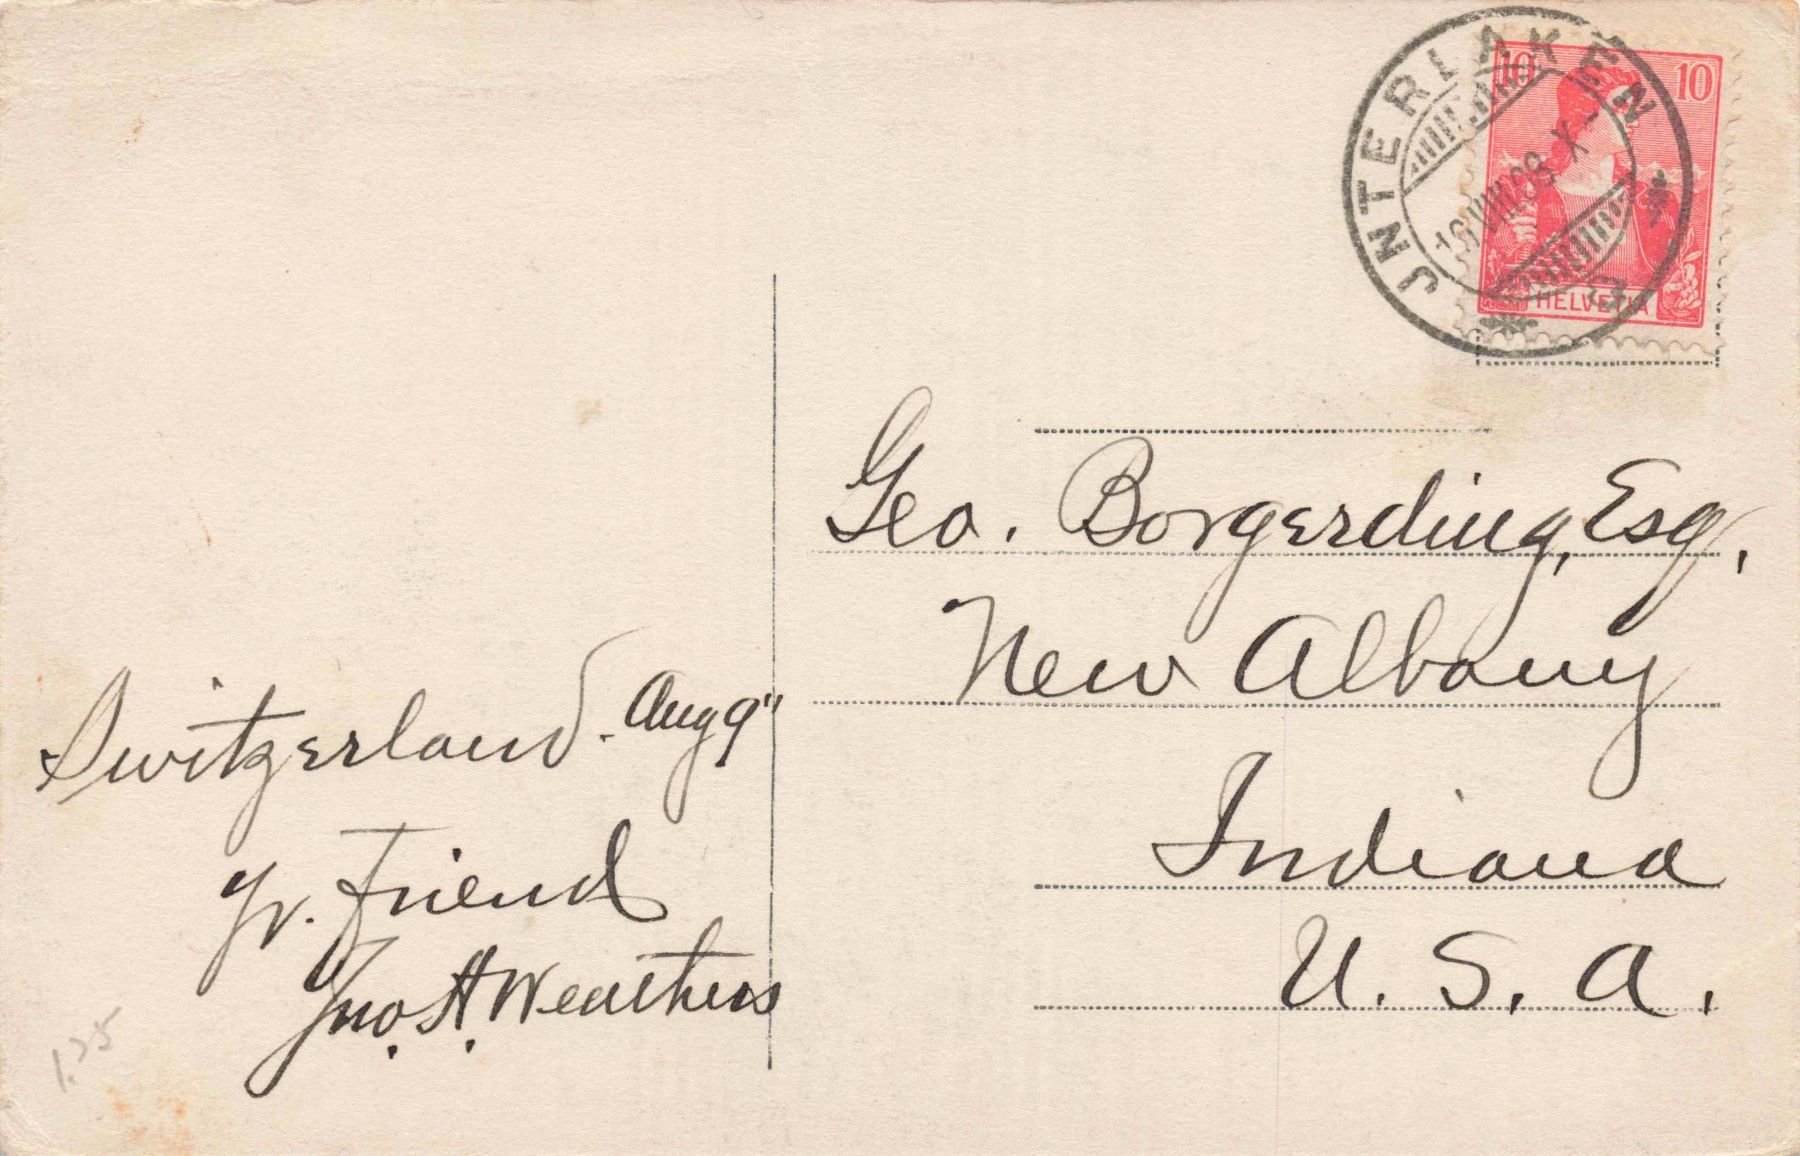 JNTERLAKEN
10 10
VIII.09 X-
HELVETIA
Geo. Borgerding, Esq.,
New Albany
Indiana
U. S. A.
Switzerland. Aug 9"
Yr. Friend
Jno. H. Weathers
1.25